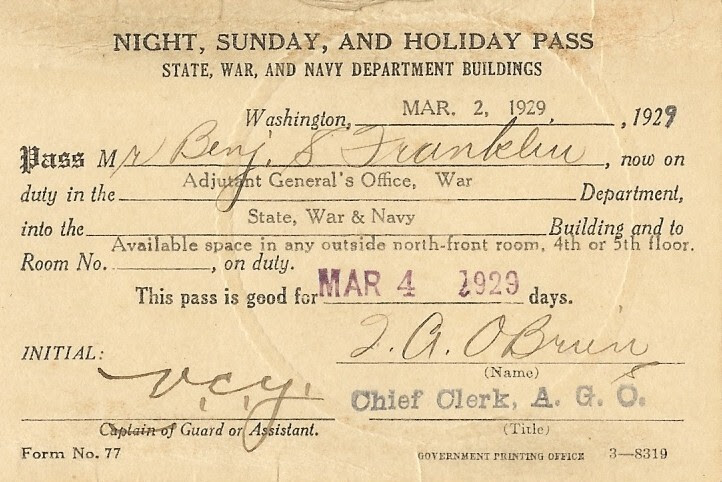 NIGHT, SUNDAY, AND HOLIDAY PASS
STATE, WAR, AND NAVY DEPARTMENT BUILDINGS
Washington, MAR. 2, 1929, 1929
Pass Mr Benj. S Franklin, now on
duty in the Adjutant General's Office, War Department,
into the State, War & Navy Building and to
Available space in any outside north-front room, 4th or 5th floor.
Room No. , on duty.
This pass is good for MAR 4 1929 days.
INITIAL: J. A. OBrien
(Name)
v.c.y. Chief Clerk, A. G. O.
Captain of Guard or Assistant. (Title)
Form No. 77 GOVERNMENT PRINTING OFFICE 3—8319